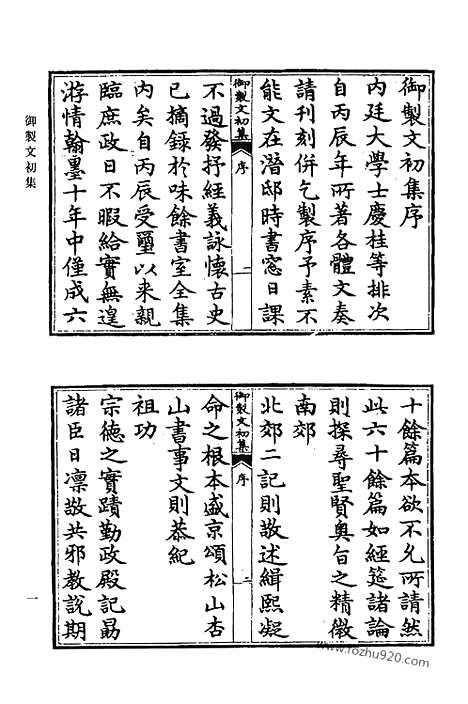 御製文初集序
內廷大學士慶桂等排次
自丙辰年所著各體文奏
請刊刻併乞製序予素不
能文在潛邸時書窓日課
御製文初集
序
一
不過發抒經義詠懷古史
已摘錄於味餘書室全集
內矣自丙辰受璽以来親
臨庶政日不暇給實無遑
游情翰墨十年中僅成六
十餘篇本欲不允所請然
此六十餘篇如經筵諸論
則探尋聖賢奧旨之精微
南郊
北郊二記則敬述緝熙凝
御製文初集
序
二
命之根本盛京頌松山杏
山書事文則恭紀
祖功
宗德之實蹟勤政殿記勗
諸臣日凛敬共邪教說期
御製文初集
一
www.fozhu920.com